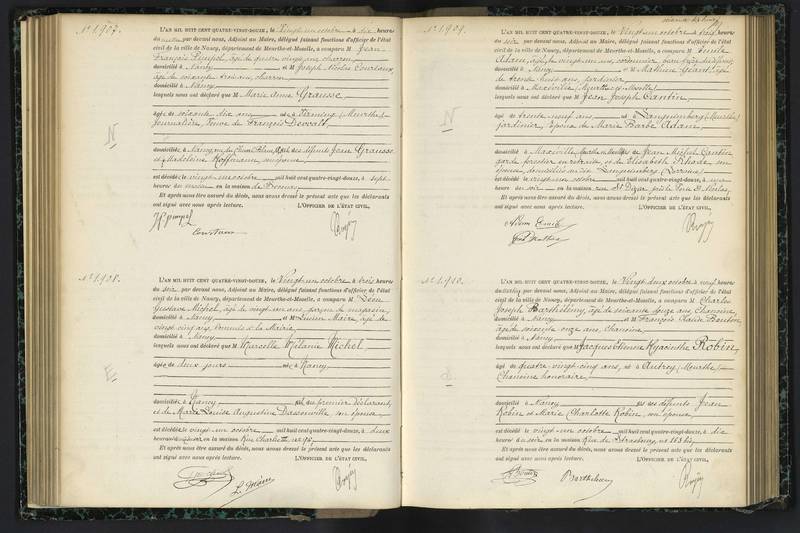 N° 1907.
L'AN MIL HUIT CENT QUATRE-VINGT-DOUZE, le Vingt-un octobre à dix heures
du matin par devant nous, Adjoint au Maire, délégué faisant fonctions d'officier de l'état
civil de la ville de Nancy, département de Meurthe-et-Moselle, a comparu M Jean
François Pimpel, âgé de quatre vingts ans, charron
domicilié à Nancy et M Joseph Nicolas
âgé de soixante trois ans, charron
domicilié à Nancy
lesquels nous ont déclaré que M Marie Anne Grausse
âgée de soixante dix ans née à (Meurthe)
journalière, Veuve de François Devoatt
domiciliée à Nancy, rue des défunts Jean Grausse
et Madeleine Hoffmann, son épouse
est décédée le vingt-un octobre mil huit cent quatre-vingt-douze, à sept
heures du matin en la maison de Secours
Et après nous être assuré du décès, nous avons dressé le présent acte que les déclarants
ont signé avec nous après lecture. L'OFFICIER DE L'ÉTAT CIVIL,
N
N° 1908.
L'AN MIL HUIT CENT QUATRE-VINGT-DOUZE, le Vingt-un octobre à trois heures
du soir par devant nous, Adjoint au Maire, délégué faisant fonctions d'officier de l'état
civil de la ville de Nancy, département de Meurthe-et-Moselle, a comparu M Léon
Gustave Michel, âgé de vingt-un ans, garçon de magasin,
domicilié à Nancy et M Lucien Maire, âgé de
vingt cinq ans, employé à la Mairie,
domicilié à Nancy
lesquels nous ont déclaré que M Marcelle Mélanie Michel
âgée de deux jours née à Nancy
domiciliée à Nancy fille du premier déclarant
et de Marie Louise Augustine Dassonville, son épouse,
est décédée le vingt-un octobre mil huit cent quatre-vingt-douze, à deux
heures en la maison Rue Charles III
Et après nous être assuré du décès, nous avons dressé le présent acte que les déclarants
ont signé avec nous après lecture. L'OFFICIER DE L'ÉTAT CIVIL,
E
L. Maire
N° 1909.
L'AN MIL HUIT CENT QUATRE-VINGT-DOUZE, le Vingt-un octobre à trois heures
du soir par devant nous, Adjoint au Maire, délégué faisant fonctions d'officier de l'état
civil de la ville de Nancy, département de Meurthe-et-Moselle, a comparu M Emile
Adam, âgé de vingt-un ans, cordonnier, beau frère du défunt,
domicilié à Nancy et M Mathieu Géant, âgé
de trente huit ans, jardinier,
domicilié à Maxéville (Meurthe et Moselle)
lesquels nous ont déclaré que M Jean Joseph Cantin,
âgé de trente neuf ans né à (Meurthe)
jardinier, époux de Marie Barbe Adam,
domicilié à Maxéville, Meurthe et Moselle, fils de Jean Michel Cantin
garde forestier en retraite, et de Elisabeth Rhode son
épouse, domiciliés audit (Lorraine)
est décédé le vingt-un octobre mil huit cent quatre-vingt-douze, à une
heure du soir en la maison rue St Dizier, près la Porte St Nicolas,
Et après nous être assuré du décès, nous avons dressé le présent acte que les déclarants
ont signé avec nous après lecture. L'OFFICIER DE L'ÉTAT CIVIL,
N
Adam Emile
Géant Mathieu
N° 1910.
L'AN MIL HUIT CENT QUATRE-VINGT-DOUZE, le Vingt-deux octobre à neuf heures
du matin par devant nous, Adjoint au Maire, délégué faisant fonctions d'officier de l'état
civil de la ville de Nancy, département de Meurthe-et-Moselle, a comparu M Charles
Joseph Barthélemy, âgé de soixante douze ans, Chanoine,
domicilié à Nancy et M François Claude
âgé de soixante onze ans, Chanoine,
domicilié à Nancy
lesquels nous ont déclaré que M Jacques Etienne Hyacinthe Robin,
âgé de quatre-vingt-cinq ans, né à Autrey (Meurthe)
Chanoine honoraire,
domicilié à Nancy fils des défunts Jean
Robin et Marie Charlotte Robin, son épouse,
est décédé le vingt-un octobre mil huit cent quatre-vingt-douze, à dix
heures du soir en la maison Rue de Strasbourg, no 163 bis,
Et après nous être assuré du décès, nous avons dressé le présent acte que les déclarants
ont signé avec nous après lecture. L'OFFICIER DE L'ÉTAT CIVIL,
Barthélemy